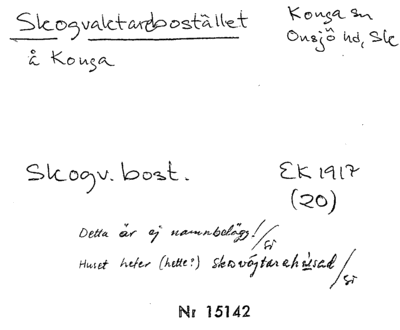 Skogvaktarebostället
Konga sn
Onsjö hd, Sk
å Konga
Skogv. bost.
EK 1917
(20)
Detta är ej namnbelägg! /Si
Huset heter (hette?) skovögtarahusad /Si
Nr 15142